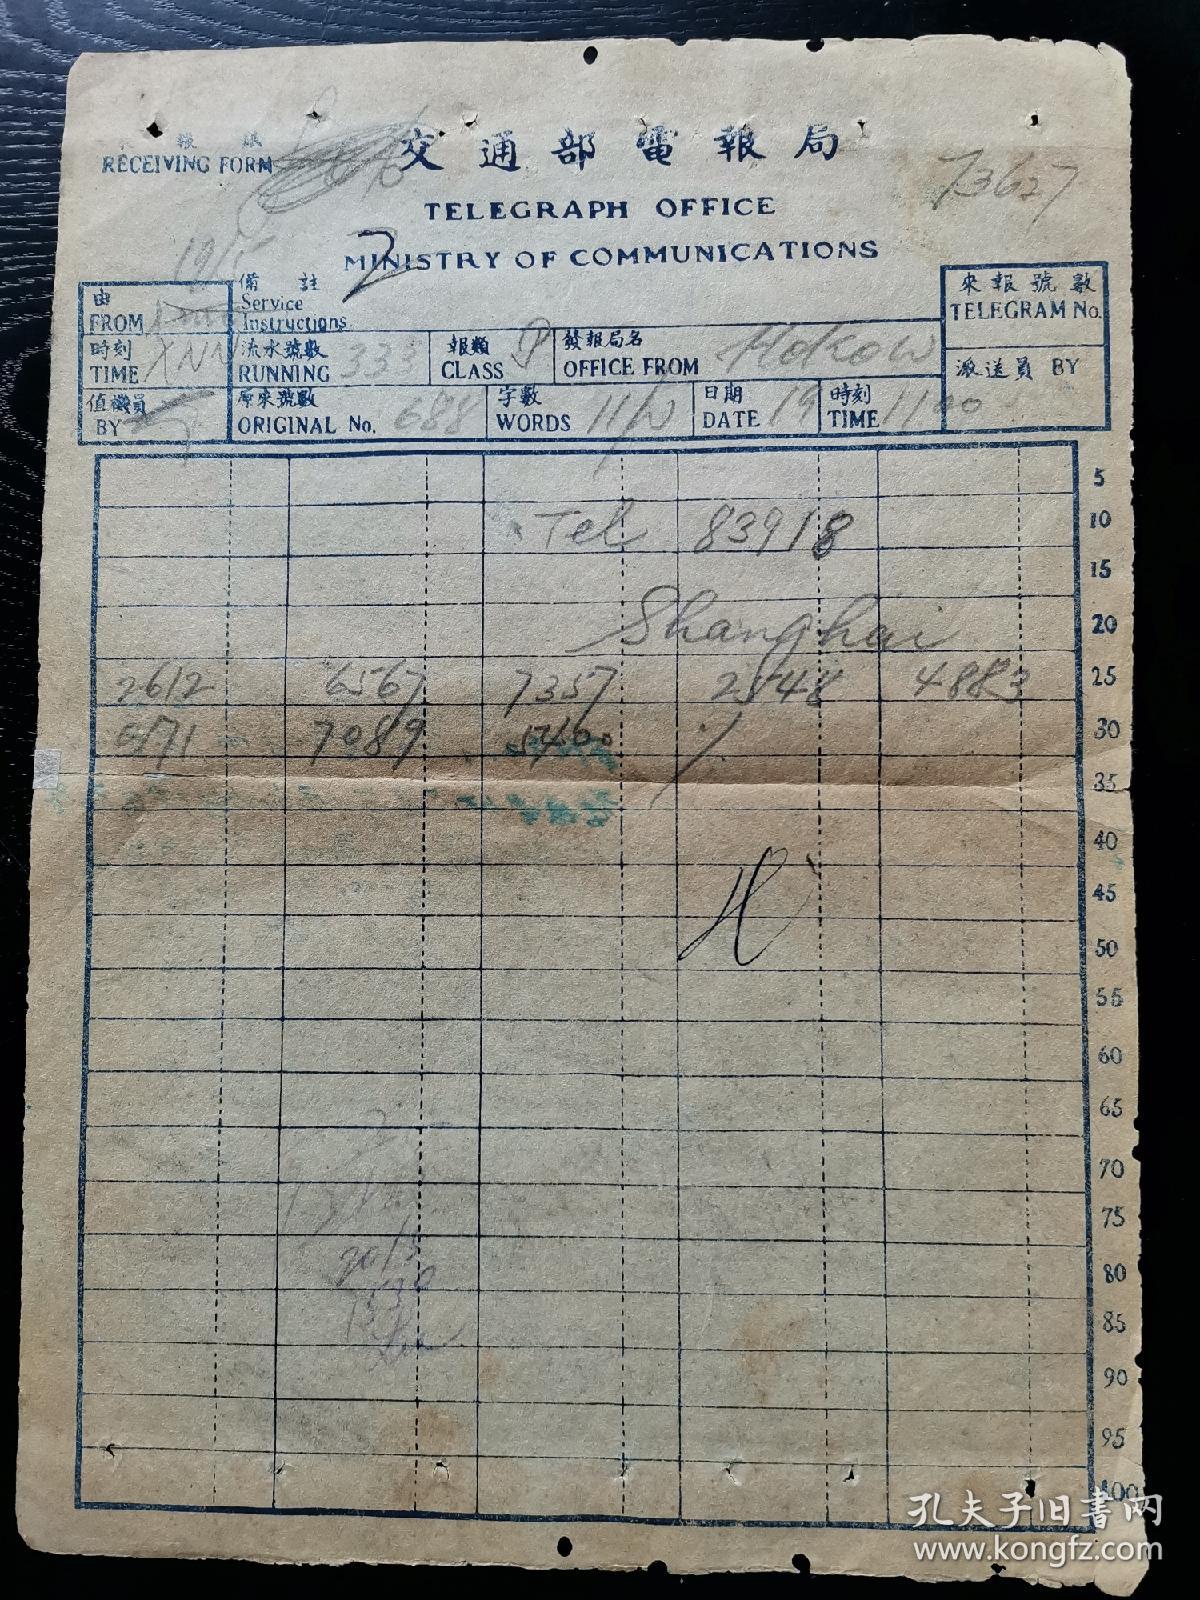 報 紙
RECEIVING FORM
交通部電報局
73627
TELEGRAPH OFFICE
MINISTRY OF COMMUNICATIONS
19/5
2
由
FROM
備註
Service
Instructions
來報號數
TELEGRAM No.
時刻
TIME XNN
流水號數
RUNNING 333
報類
CLASS
發報局名
OFFICE FROM Hokow
派送員 BY
值機員
BY
原來號數
ORIGINAL No. 688
字數
WORDS 11/10
日期
DATE 19
時刻
TIME 1100
5
Tel 83918 10
15
Shanghai 20
2612 6567 7357 2548 4883 25
5171 7089 5400 30
35
40
45
50
55
60
65
70
75
80
85
90
95
100
孔夫子旧书网
www.kongfz.com